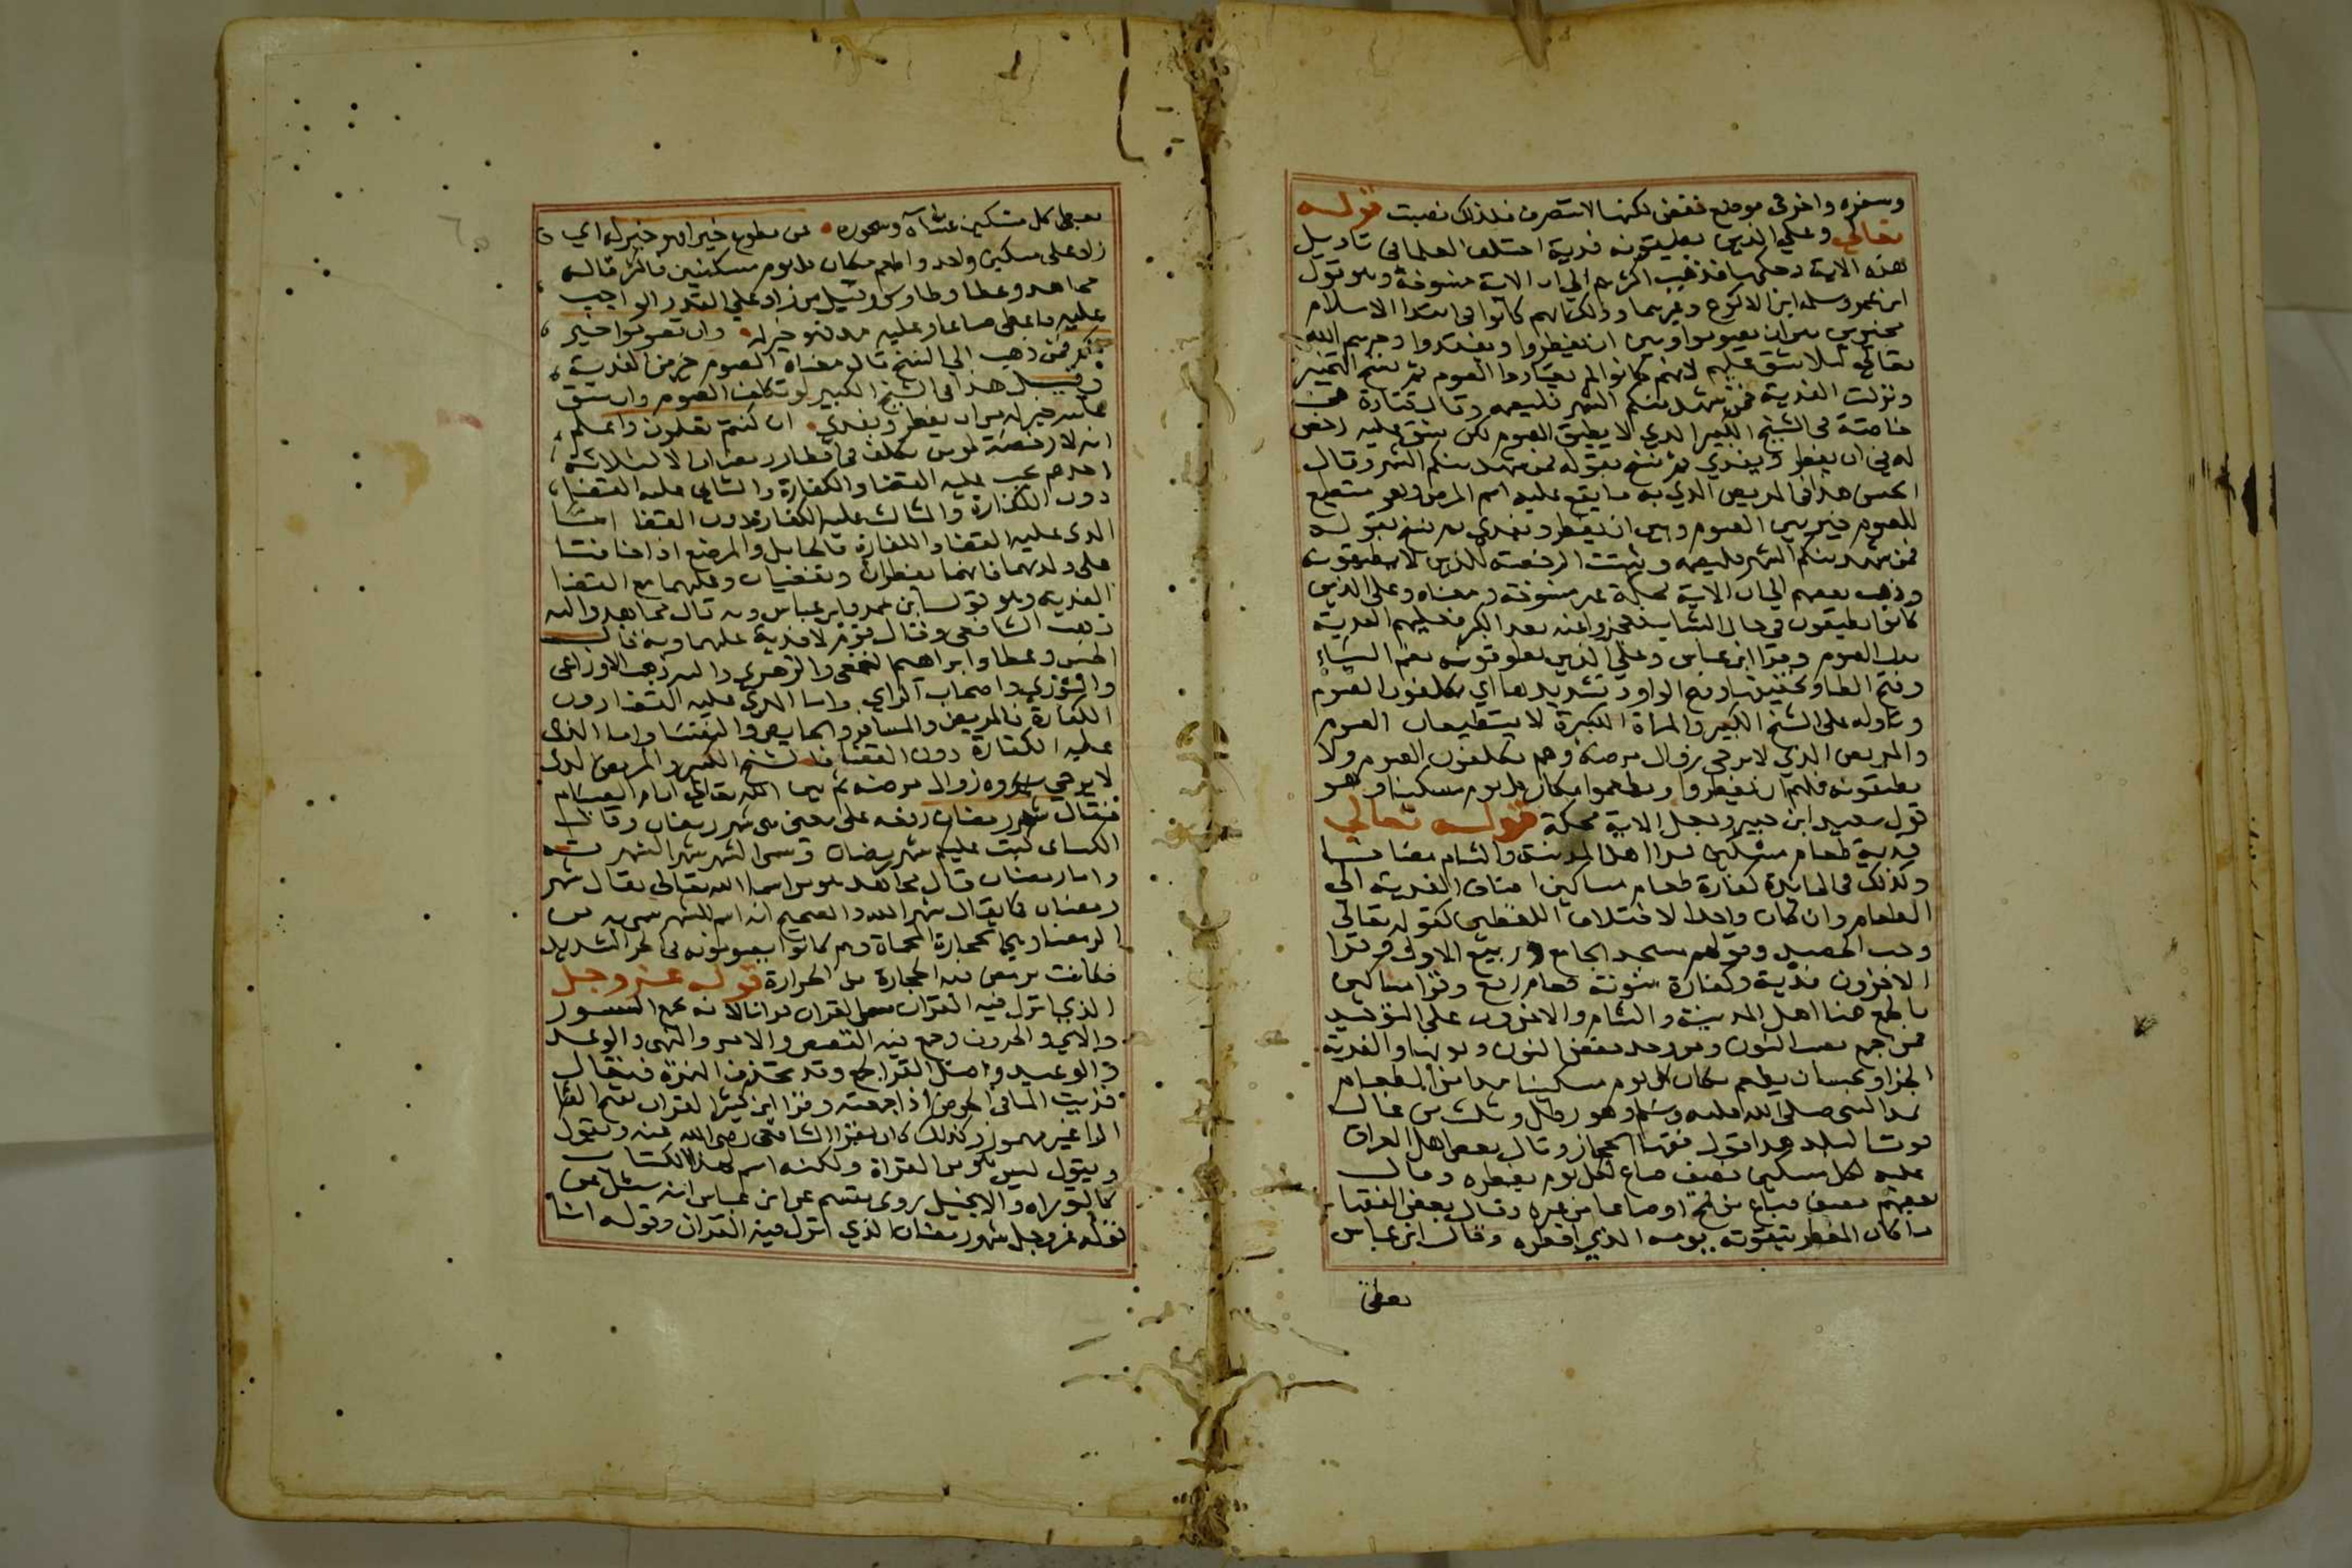 وسفره واخر في موضع خفض لكنها لا تنصرف فلذلك نصبت قوله
تعالى وعلي الذين يطيقونه فدية اختلف العلما في تاويل
هذه الاية وحكمها فذهب اكثرهم الي ان الاية منسوخة وهو قول
ابن عمر وسلمة ابن الاكوع وغيرهما وذلك انهم كانوا في ابتدا الاسلام
مخيرين بين ان يصوموا وبين ان يفطروا ويفتدوا خيرهم الله
تعالي ليلا يشق عليهم لانهم كانوا لم يعتادوا الصوم ثم نسخ التخيير
ونزلت الفدية فمن شهد منكم الشهر فليصمه وقال قتادة هي
خاصة في الشيخ الكبير الذي لا يطيق الصوم لكن يشق عليه رخص
له في ان يفطر ويفدي ثم نسخ بقوله فمن شهد منكم الشهر وقال
الحسن هذا في المريض الذي به ما يقع عليه اسم المرض وهو مستطيع
للصوم خير بين الصوم وبين ان يفطر ويفدي ثم نسخ بقوله
فمن شهد منكم الشهر فليصمه وثبتت الرخصة للذين لا يطيقون
وذهب بعضهم الي ان الاية محكمة غير منسوخة ومعناه وعلى الذين
كانوا يطيقون في حال الشباب فعجزوا عنه بعد الكبر فعليهم الفدية
بدل الصوم وقرا ابن عباس وعلي الذين يطوقونه بضم الياء
وفتح الطا وتخفيفها وفتح الواو وتشديدها اي يكلفون الصوم
وتاوله على الشيخ الكبير والمراة الكبيرة لا يستطيعان الصوم
والمريض الذي لا يرجى زوال مرضه وهم يكلفون الصوم ولا
يطيقونه فلهم ان يفطروا ويطعموا مكان كل يوم مسكينا وهو
قول سعيد ابن جبير وجعل الاية محكمة قوله تعالي
فدية طعام مسكين قرا اهل المدينة والشام مضافا
وكذلك في المائدة كفارة طعام مساكين اضاف الفدية الي
الطعام وان كان واحدا لاختلاف اللفظين كقوله تعالي
وحب الحصيد وقولهم مسجد الجامع وربيع الاول وقرا
الاخرون فدية وكفارة منونة طعام رفع وقرا مساكين
بالجمع هنا اهل المدينة والشام والاخرون على التوحيد
فمن جمع نصب النون ومن وحد خفض النون ونونها والفدية
الجزا ويجب ان يطعم مكان كل يوم مسكينا مدا من الطعام
بمد النبي صلى الله عليه وسلم وهو رطل وثلث من غالب
قوت البلد هذا قول فقها الحجاز وقال بعض اهل العراق
عليه لكل مسكين نصف صاع لكل يوم يفطره وقال
بعضهم نصف صاع من قمح او صاعا من غيره وقال بعض الفقها
ما كان المفطر يتقوته يومه الذي افطره وقال ابن عباس
يعطي
يعطي كل مسكين عشاه وسحوره فمن تطوع خيرا فهو خير له اي
زاد على مسكين واحد واطعم مكان كل يوم مسكينين فاكثر قاله
مجاهد وعطا وطاوس وقيل من زاد علي القدر الواجب
عليه فاعطى صاعا وعليه مد فهو خير له وان تصوموا خير
لكم فمن ذهب الي النسخ قال معناه الصوم خير من الفدية
وقيل هذا في الشيخ الكبير لو تكلف الصوم وان شق
عليه خير له من ان يفطر ويفدي ان كنتم تعلمون واعلم
انه لا رخصة لمومن مكلف في افطار رمضان الا لثلاثة
احدهم يجب عليه القضا والكفارة والثاني عليه القضا
دون الكفارة والثالث عليه الكفارة دون القضا اما
الذي عليه القضا والكفارة فالحامل والمرضع اذا خافتا
على ولديهما فانهما يفطران ويقضيان وعليهما مع القضا
الفدية وهو قول ابن عمر وابن عباس وبه قال مجاهد واليه
ذهب الشافعي وقال قوم لا فدية عليهما وبه قال
الحسن وعطا وابراهيم النخعي والزهري واليه ذهب الاوزاعي
والثوري واصحاب الراي واما الذي عليه القضا دون
الكفارة فالمريض والمسافر والحايض والنفسا واما الذي
عليه الكفارة دون القضا فالشيخ الكبير والمريض الذي
لا يرجي زوال مرضه ثم بين الله تعالي ايام الصيام
فقال شهر رمضان رفعه على معنى هي شهر رمضان وقال
الكساي كتب عليكم شهر رمضان وسمي الشهر شهرا لشهرته
واما رمضان قال مجاهد هو من اسما الله تعالي يقال شهر
رمضان كما يقال شهر الله والصحيح انه اسم للشهر سمي به من
الرمضا وهي الحجارة المحماة وهم كانوا يصومونه في الحر الشديد
فكانت ترمض فيه الحجارة من الحرارة قوله عز وجل
الذي انزل فيه القران سمي القران قرانا لانه يجمع السور
والاي والحروف وجمع فيه القصص والامر والنهي والوعد
والوعيد واصل القرا الجمع وقد تحذف الهمزة فيقال
قريت الما في الحوض اذا جمعته وقرا ابن كثير القران بفتح القا
الرا غير مهموز وكذلك كان يقرا الشافعي رضي الله عنه ويقول
ويقول ليس هو من القراة ولكنه اسم لهذا الكتاب
كالتوراه والانجيل روى مقسم عن ابن عباس انه سئل عن
قوله عز وجل شهر رمضان الذي انزل فيه القران وقوله انا